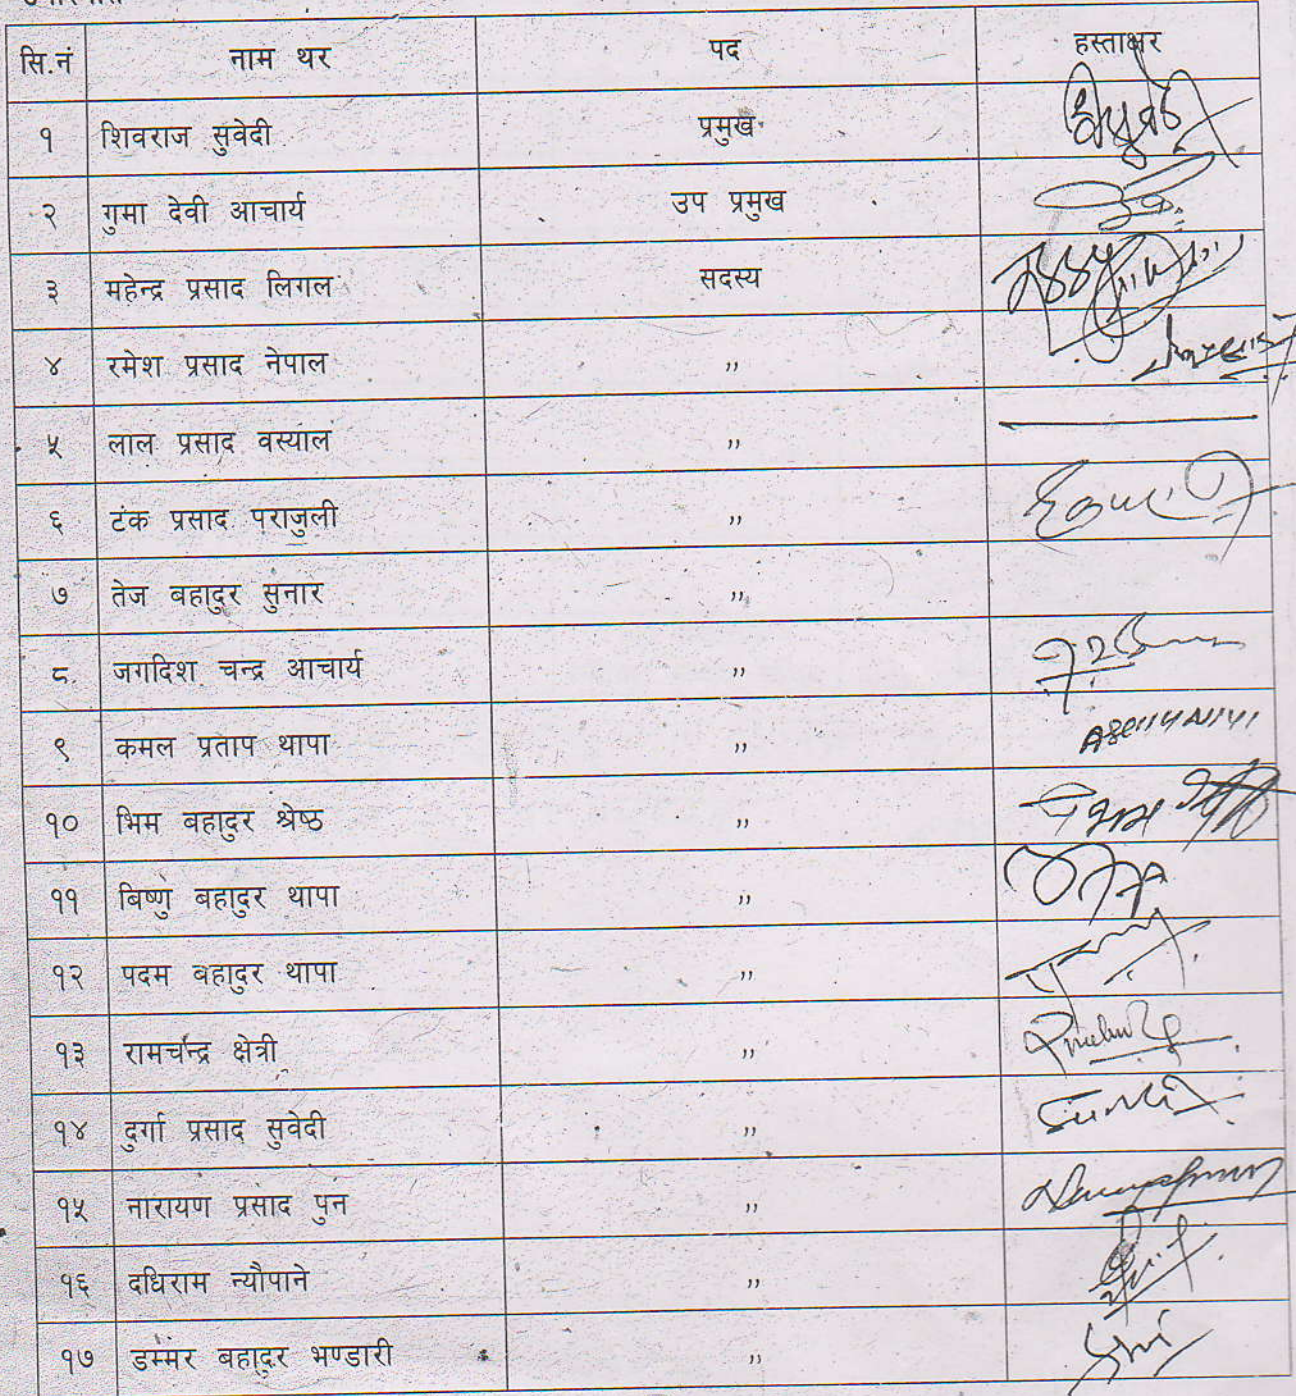 सि.नं नाम थर पद हस्ताक्षर
१ शिवराज सुवेदी प्रमुख
२ गुमा देवी आचार्य उप प्रमुख
३ महेन्द्र प्रसाद लिगल सदस्य
४ रमेश प्रसाद नेपाल ,,
५ लाल प्रसाद वस्याल ,,
६ टंक प्रसाद पराजुली ,,
७ तेज बहादुर सुनार ,,
८ जगदिश चन्द्र आचार्य ,,
९ कमल प्रताप थापा ,,
१० भिम बहादुर श्रेष्ठ ,,
११ बिष्णु बहादुर थापा ,,
१२ पदम बहादुर थापा ,,
१३ रामचन्द्र क्षेत्री ,,
१४ दुर्गा प्रसाद सुवेदी ,,
१५ नारायण प्रसाद पुन ,,
१६ दधिराम न्यौपाने ,,
१७ डम्मर बहादुर भण्डारी ,,